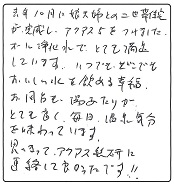 去年10月に娘夫婦との二世帯住宅
が完成し、アクアス5をつけました。
おいしい浄化水で、とても満足
しています。いつでもどこでも
おいしい水を飲める幸福、
お風呂も湯ざわりが
とても良く、毎日、温泉気分
を味わっています。
思いきって、アクアス総研に
連絡して良かったです!!